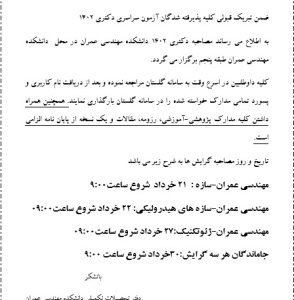 ضمن تبریک قبولی کلیه پذیرفته شدگان آزمون سراسری دکتری ۱۴۰۲
به اطلاع می رساند مصاحبه دکتری ۱۴۰۲ دانشکده مهندسی عمران در محل دانشکده
مهندسی عمران طبقه پنجم برگزار می گردد.
کلیه داوطلبین در اسرع وقت به سامانه گلستان مراجعه نموده و بعد از دریافت نام کاربری و
پسورد تمامی مدارک خواسته شده را در سامانه گلستان بارگذاری نمایند. همچنین همراه
داشتن کلیه مدارک پژوهشی-آموزشی، رزومه، مقالات و یک نسخه از پایان نامه الزامی
است.
تاریخ و روز مصاحبه گرایش ها به شرح زیر می باشد
مهندسی عمران-سازه : ۲۱ خرداد شروع ساعت ۹:۰۰
مهندسی عمران-سازه های هیدرولیکی: ۲۲ خرداد شروع ساعت ۰۹:۰۰
مهندسی عمران-ژئوتکنیک: ۲۷ خرداد شروع ساعت ۰۹:۰۰
جاماندگان هر سه گرایش: ۳۰خرداد شروع ساعت ۰۹:۰۰
باتشکر
دفتر تحصیلات تکمیلی دانشکده مهندسی عمران